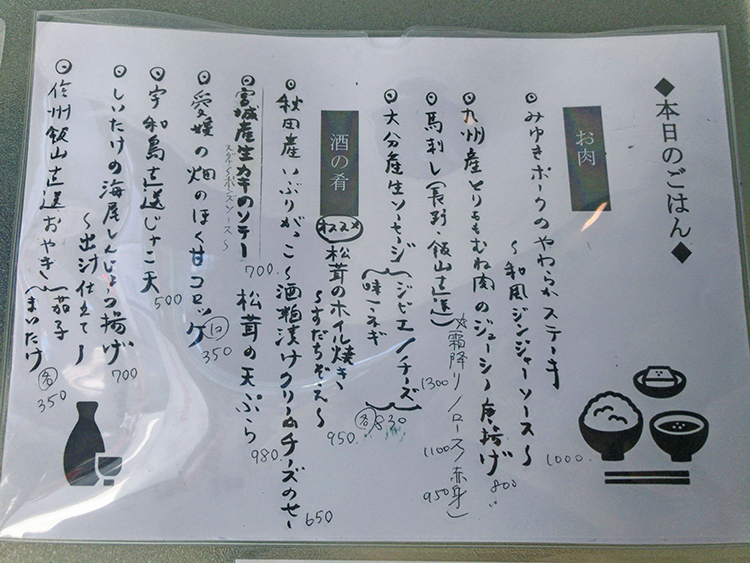 ◆本日のごはん◆
お肉
みゆきポークのやわらかステーキ
〜和風ジンジャーソース〜 1000
九州産とりももむね肉のジューシー唐揚げ 800
馬刺し(長野・飯山直送)
(霜降り/ロース/赤身)
1300 1100 950
大分産生ソーセージ
(ジビエ/チーズ/
味一ネギ) 各830
酒の肴
オススメ 松茸のホイル焼き
〜すだちぞえ〜 950
秋田産いぶりがっこ〜酒粕漬けクリームチーズのせ〜 650
宮城産生カキのソテー 700
ソース〜
松茸の天ぷら 980
愛媛の畑のほくほく甘コロッケ 1コ 350
宇和島直送じゃこ天 500
しいたけの海老しんじょう揚げ
〜出汁仕立て〜 700
信州飯山直送おやき(茄子
まいたけ 各350